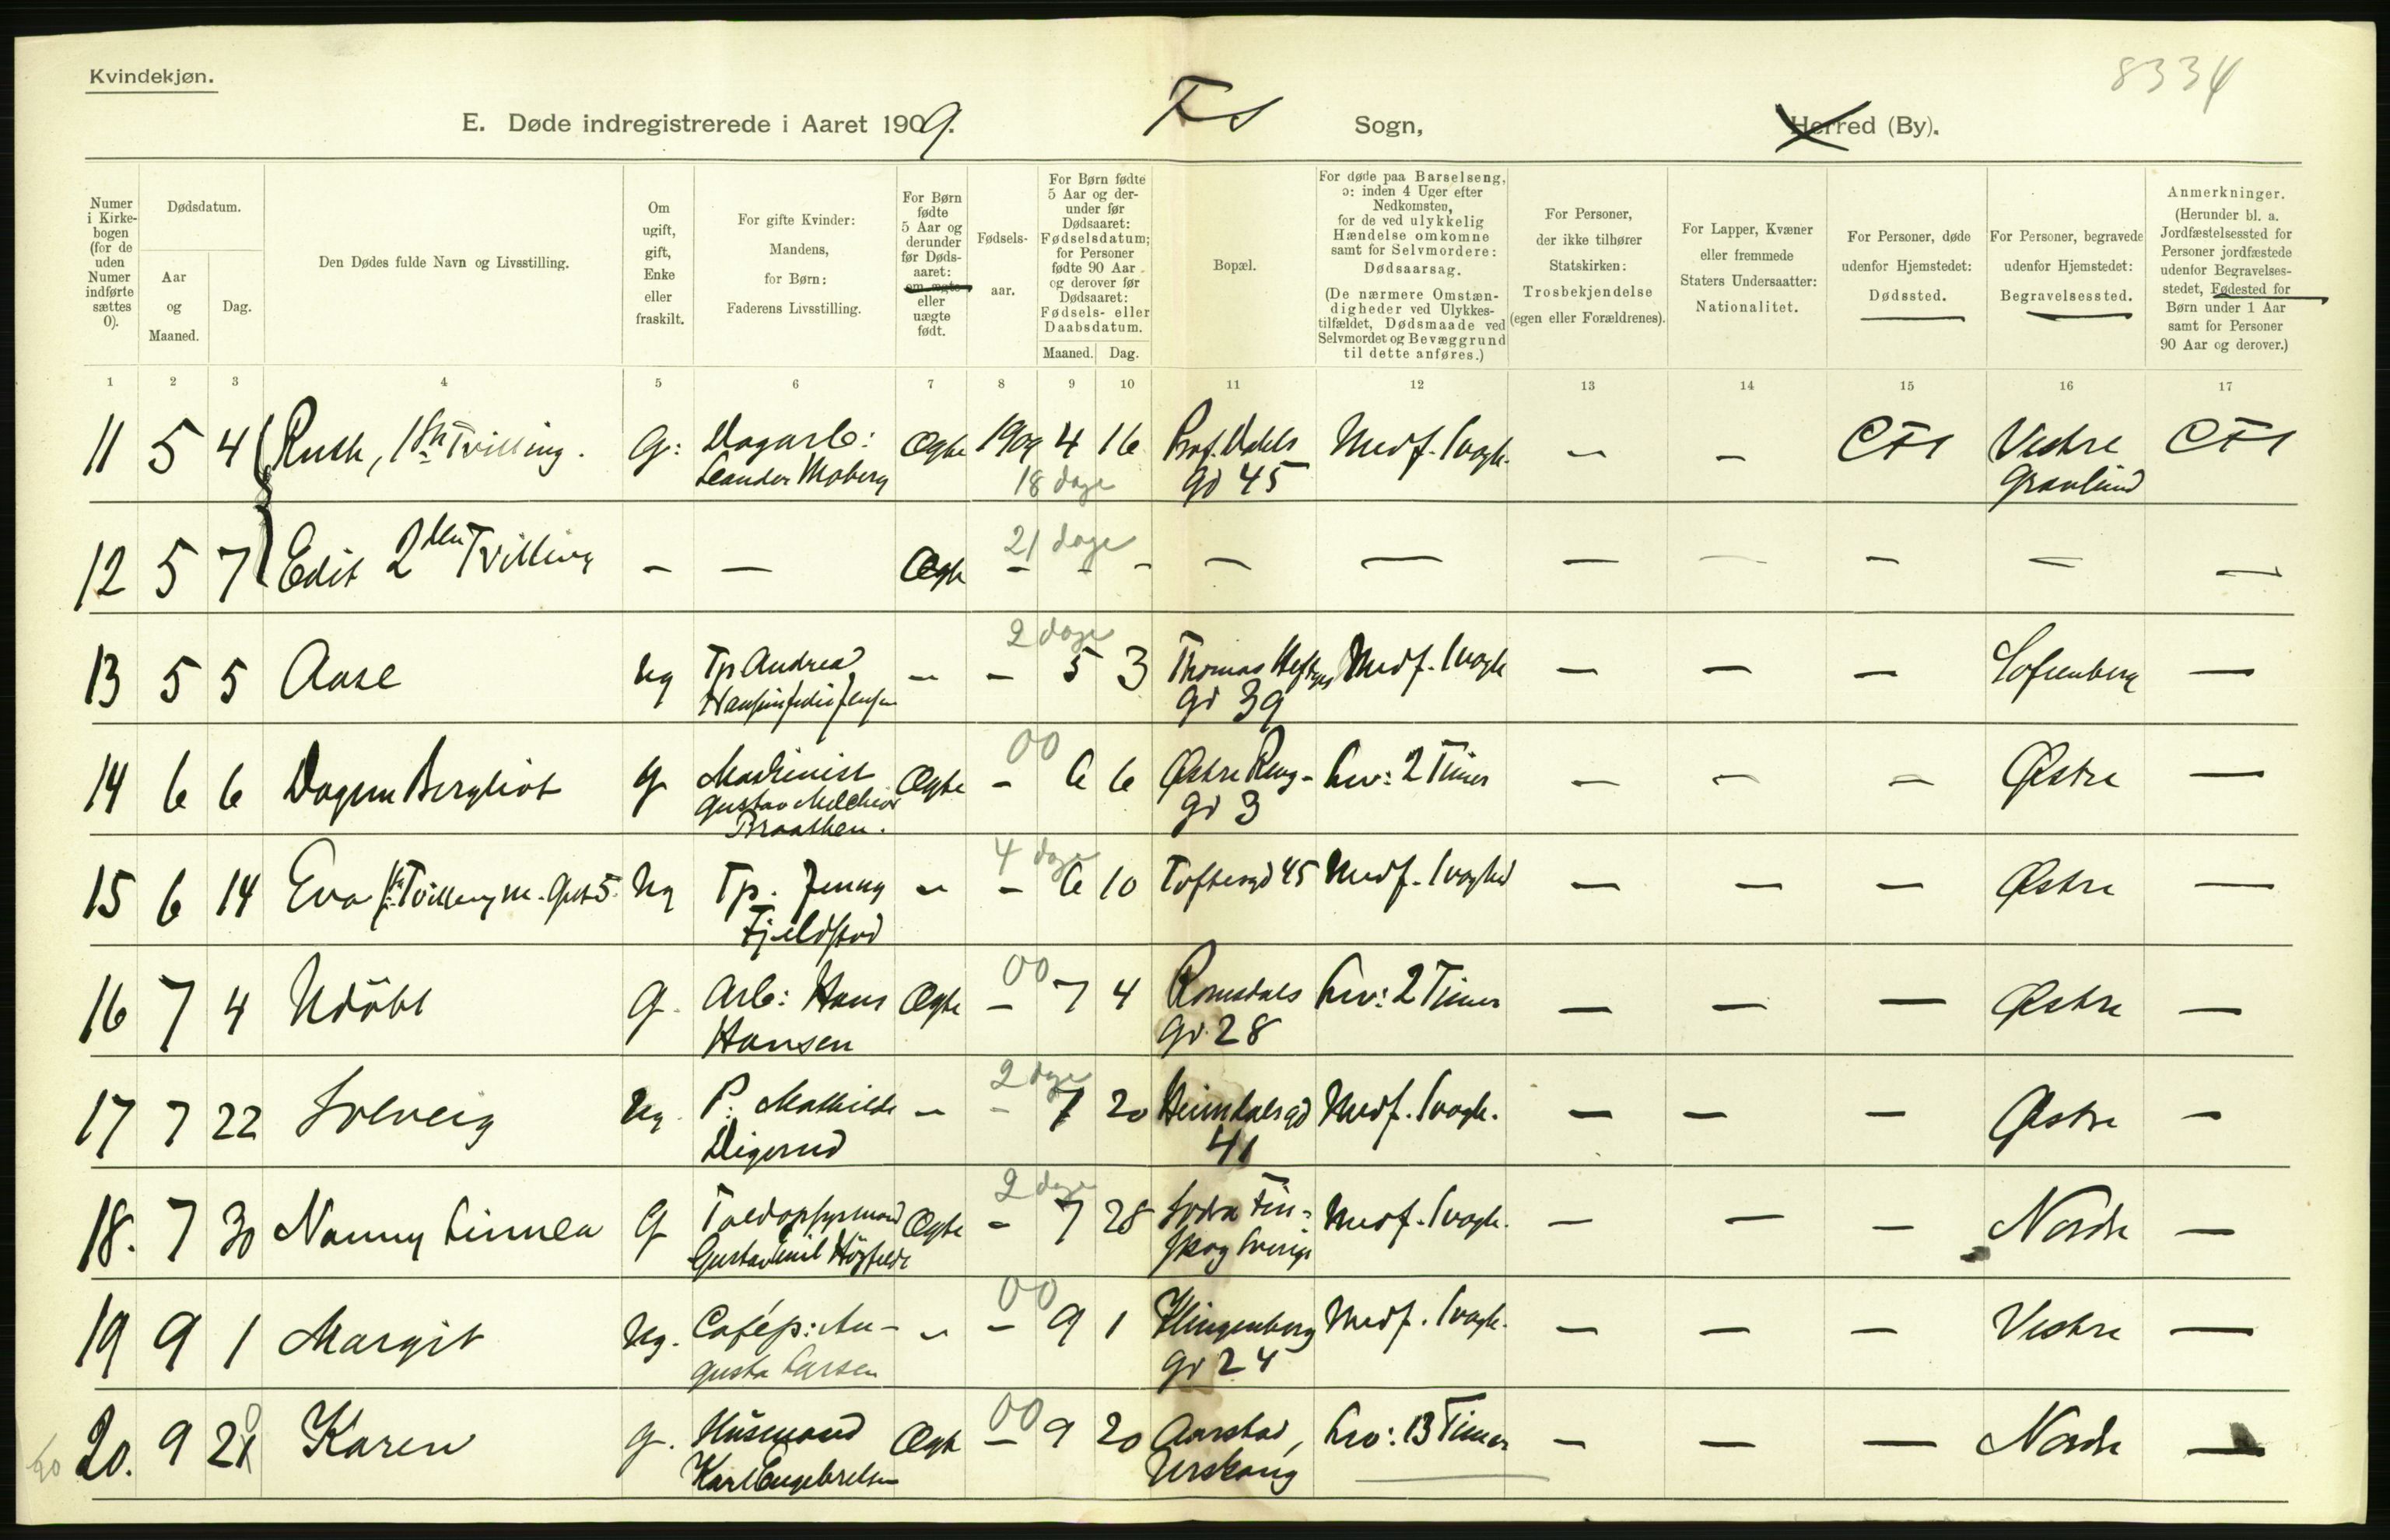 Kvindekjøn.
8334
E. Døde indregistrerede i Aaret 1909. FS Sogn, Herred (By).
Numer i Kirkebogen (for de uden Numer indførte sættes 0).
Dødsdatum.
Aar og Maaned.
Dag.
Den Dødes fulde Navn og Livsstilling.
Om ugift, gift, Enke eller fraskilt.
For gifte Kvinder: Mandens, for Børn: Faderens Livsstilling.
For Børn fødte 5 Aar og derunder før Døds-aaret: om ægte eller uægte født.
Fødsels-aar.
For Børn fødte 5 Aar og der-under før Dødsaaret: Fødselsdatum; for Personer fødte 90 Aar og derover før Dødsaaret: Fødsels- eller Daabsdatum.
Maaned. Dag.
Bopæl.
For døde paa Barselseng, ɔ: inden 4 Uger efter Nedkomsten, for de ved ulykkelig Hændelse omkomne samt for Selvmordere: Dødsaarsag.
(De nærmere Omstæn-digheder ved Ulykkes-tilfældet, Dødsmaade ved Selvmordet og Bevæggrund til dette anføres.)
For Personer, der ikke tilhører Statskirken: Trosbekjendelse (egen eller Forældrenes).
For Lapper, Kvæner eller fremmede Staters Undersaatter: Nationalitet.
For Personer, døde udenfor Hjemstedet: Dødssted.
For Personer, begravede udenfor Hjemstedet: Begravelsessted.
Anmerkninger. (Herunder bl. a. Jordfæstelsessted for Personer jordfæstede udenfor Begravelses-stedet, Fødested for Børn under 1 Aar samt for Personer 90 Aar og derover.)
1 2 3 4 5 6 7 8 9 10 11 12 13 14 15 16 17
11 5 4 Ruth, 1ste Tvilling. G: Dagarb: Ægte 1909 4 16 Prof. Dahls Medf. Svagh. - - CFS Vestre CFS
Leander Moberg 18 dage gd 45 Grønlund
12 5 7 Edit 2den Tvilling - - Ægte 21 dage - - - - - - - - - -
13 5 5 Aase Ug Tp Andrea - - 2 dage 5 3 Thomas Heftyes Medf. Svagh - - - Sofienberg -
gd 39
14 6 6 Dagny Bergliot G Maskinist Ægte - 00 6 6 Østre Lev: 2 Timer - - - Østre -
Gustav Melchior gd 3
Braathen.
15 6 14 Eva 1ste Tvilling Ug Tp. Jenny - - 4 dage 6 10 Toftesgd 45 Medf. Svaghed - - - Østre -
Fjeldstad
16 7 4 Udöbt G. Arb: Hans Ægte - 00 7 4 Romsdals Lev: 2 Timer - - - Østre -
Hansen gd. 28
17 7 22 Solveig Ug. P: Mathilde - - 2 dage 7 20 Heimdalsgd Medf. Svagh. - - - Østre -
Digerud 41
18. 7 30 Nanny Linnea G Ægte - 2 dage 7 28 Södra Fin- Medf. Svagh. - - - Nordre -
Gustav Emil skog Sverige
19 9 1 Margit Ug. Cafép: Au- - - 00 9 1 Klingenberg Medf. Svagh. - - - Vestre -
gusta Larsen gd 24
20. 9 20 Karen G. Husmand Ægte - 00 9 20 Aarstad, Lev: 13 Timer - - - Nordre -
Karl Engebretsen Urskoug